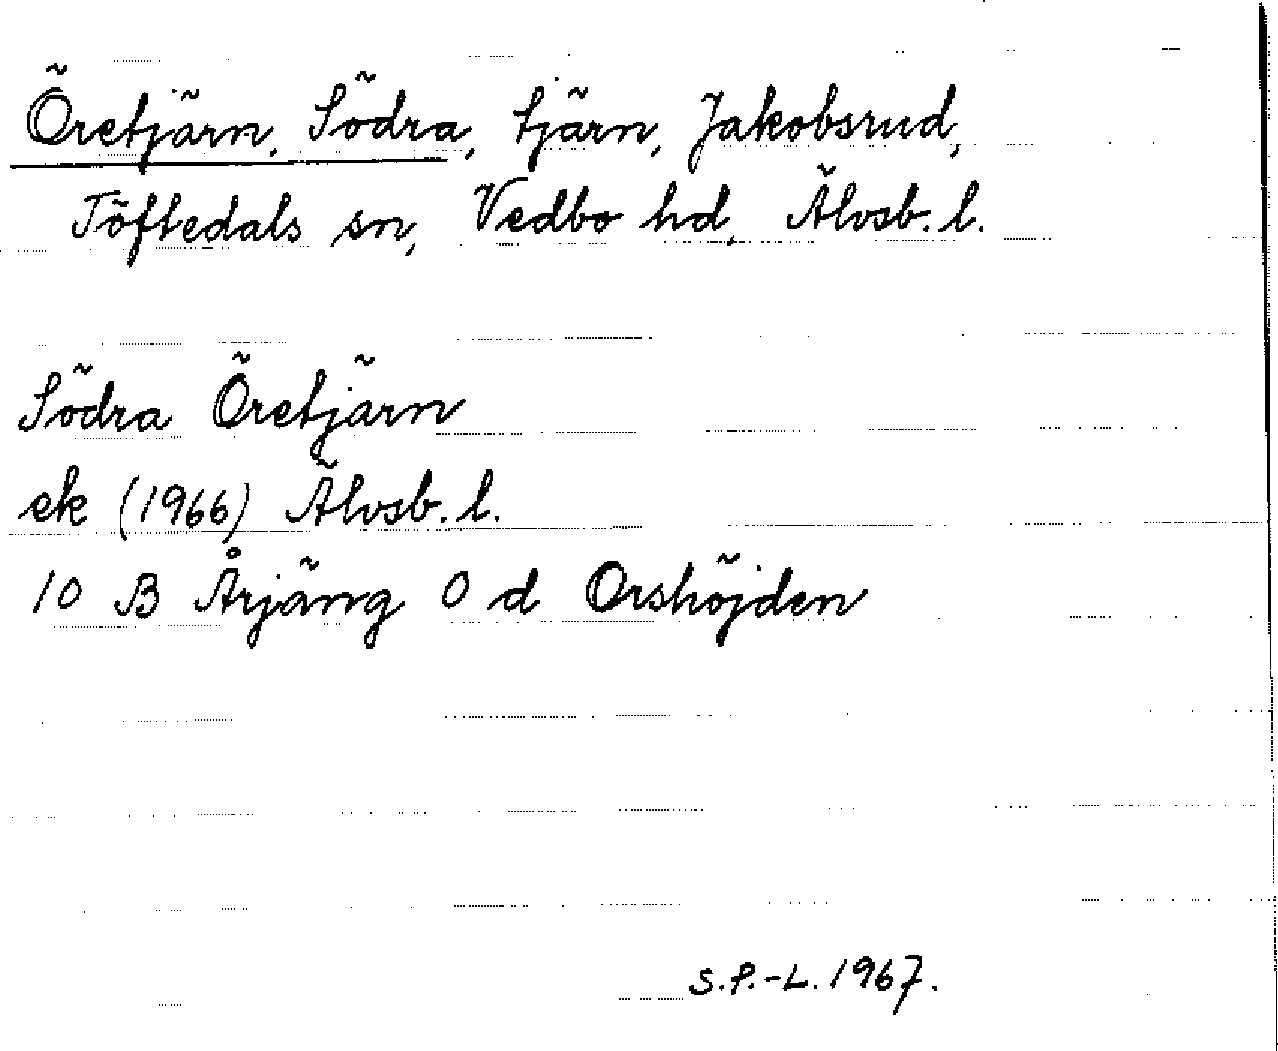 Öretjärn, Södra, tjärn, Jakobsrud,
Töftedals sn, Vedbo hd, Älvsb. l.
Södra Öretjärn
ek (1966) Älvsb. l.
10 B Årjäng 0 d Orshöjden
S.P.-L. 1967.